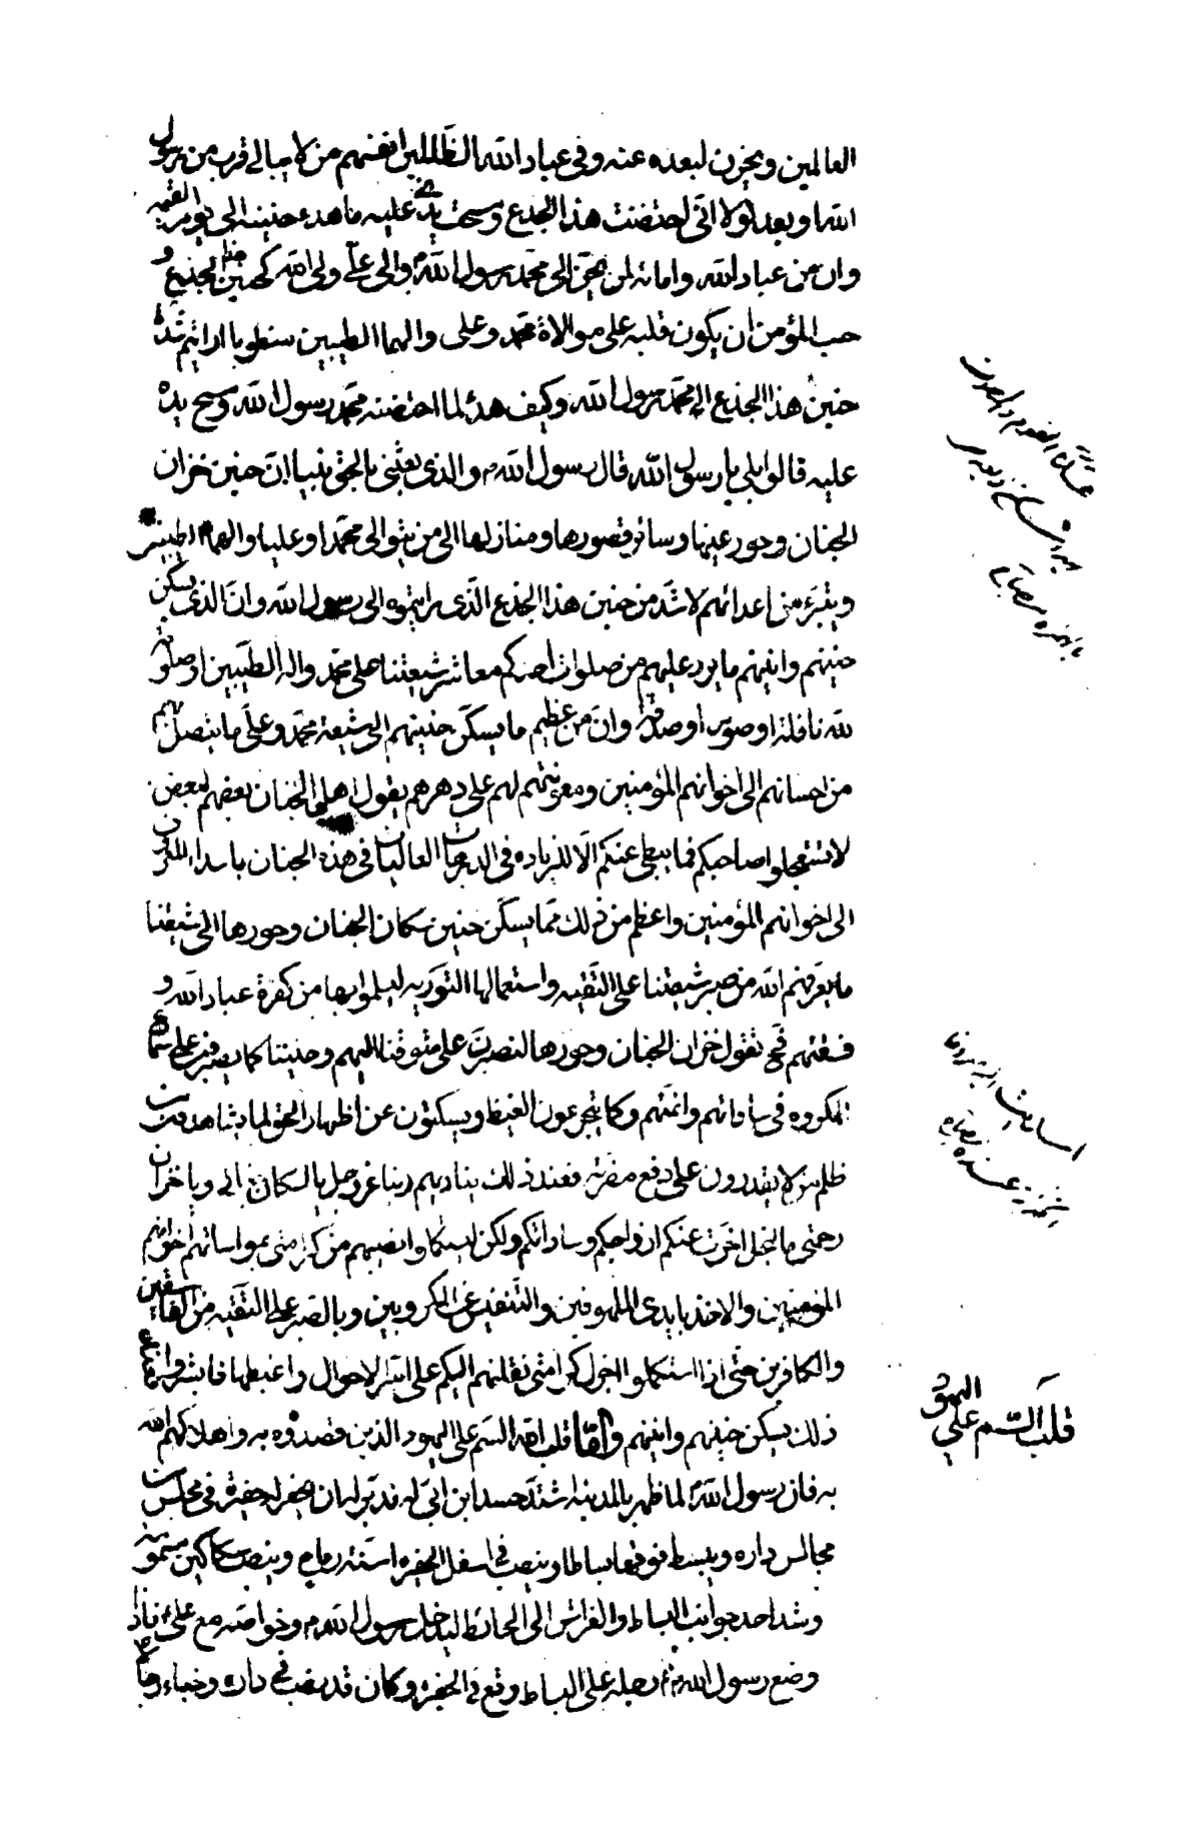 العالمين ويحزن لبعده عنه وفى عباد الله الظالمين انفسهم من لا يبالى قرب من رسول
الله او بعد ولولا انى احتضنت هذا الجذع ومسحت يدى عليه ما هدء حنينه الى يوم القيمه
وان من عباد الله وامائه لمن يحن الى محمد رسول الله والى على ولى الله كحنين الجذع و
حب المؤمن ان يكون قلبه على موالاة محمد وعلى والهما الطيبين منطويا ارايتم شدة
حنين هذا الجذع الى محمد رسول الله وكيف هدء لما احتضنه محمد رسول الله ومسح يده
عليه قالوا بلى يا رسول الله قال رسول الله ص والذى بعثنى بالحق نبيا ان حنين خزان
الجنان وحور عينها وسائر قصورها ومنازلها الى من يتوالى محمدا وعليا والهما الطيبين
ويتبرء من اعدائهم لاشد من حنين هذا الجذع الذى رايتموه الى رسول الله وان الذى يسكن
حنينهم وانينهم ما يرد عليهم من صلوات احدكم معاشر شيعتنا على محمد واله الطيبين او صلوة
لله نافلة او صوم او صدقة وان من عظيم ما يسكن حنينهم الى شيعة محمد وعلى ما يتصل بهم
من احسانهم الى اخوانهم المؤمنين ومعونتهم لهم على دهرهم يقول اهل الجنان بعضهم لبعض
لا تستعجلوا صاحبكم فما يبطى عنكم الا للزياده فى الدرجات العاليات فى هذه الجنان باسداء المعروف
الى اخوانهم المؤمنين واعظم من ذلك مما يسكن حنين سكان الجنان وحورها الى شيعتنا
ما يعرفهم الله من صبر شيعتنا على التقيه واستعمالها التوريه ليسلموا بها من كفرة عباد الله و
فسقتهم فح تقول خزان الجنان وحورها لنصبرن على شوقنا اليهم وحنيننا كما يصبرون على سماع
المكروه فى ساداتهم وائمتهم وكما يتجرعون الغيظ ويسكتون عن اظهار الحق لما يشاهدون من
ظلم من لا يقدرون على دفع مضرته فعند ذلك يناديهم ربنا عز وجل يا سكان جنانى ويا خزان
رحمتى ما لبخل اخرت عنكم ازواجكم وساداتكم ولكن ليستكملوا نصيبهم من كرامتى بمواساتهم اخوانهم
المؤمنين والاخذ بايدى الملهوفين والتنفيس عن المكروبين وبالصبر على التقيه من الفاسقين
والكافرين حتى اذا استكملوا اجزل كرامتى نقلتهم اليكم على اسر الاحوال واغبطها فابشروا فعند
ذلك يسكن حنينهم وانينهم واما قلب الله السم على اليهود الذين قصدوه به واهلاكهم الله
به فان رسول الله لما ظهر بالمدينه اشتد حسد ابن ابى له فدبر له ان يحفر له حفيرة فى مجلس من
مجالس داره ويبسط فوقها بساطا وينصب فى اسفل الحفيره اسنة رماح وينصب سكاكين مسمومه
وشد احد جوانب البساط والفراش الى الحائط ليدخل رسول الله ص وخواصه مع على ع فاذا
وضع رسول الله ص رجله على البساط وقع فى الحفرة وكان قد نصب فى داره وخباء رجالا
قلب السم على اليهود